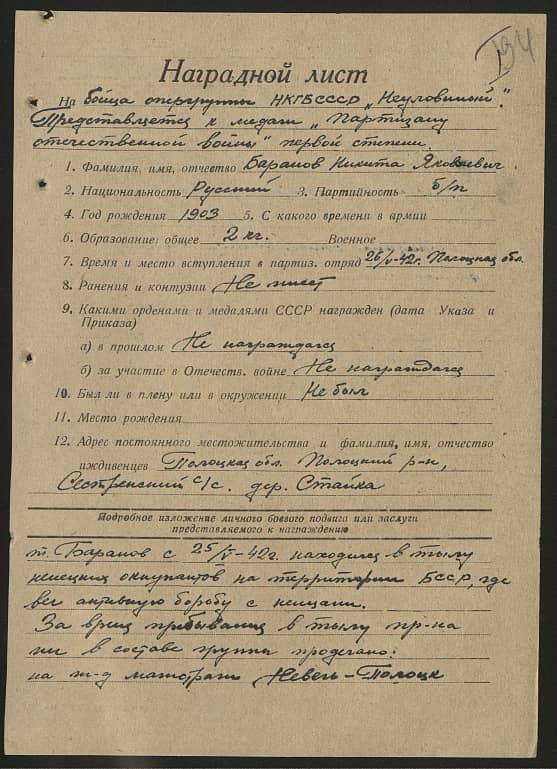 194
Наградной лист
На бойца опергруппы НКГБСССР „Неуловимый".
Представляется к медали „Партизану
отечественной войны" первой степени.
1. Фамилия, имя, отчество Баранов Никита Яковлевич
2. Национальность Русский 3. Партийность б/п
4. Год рождения 1903 5. С какого времени в армии
6. Образование: общее 2 кл. Военное
7. Время и место вступления в партиз. отряд 25/V-42г. Полоцкая обл.
8. Ранения и контузии Не имеет
9. Какими орденами и медалями СССР награжден (дата Указа и
Приказа)
а) в прошлом Не награждался
б) за участие в Отечеств. войне Не награждался
10. Был ли в плену или в окружении Не был
11. Место рождения
12. Адрес постоянного местожительства и фамилия, имя, отчество
иждивенцев Полоцкая обл. Полоцкий р-н,
Сестренский с/с. дер. Стайка
Подробное изложение личного боевого подвига или заслуги
представляемого к награждению
т. Баранов с 25/V-42г. находился в тылу
немецких оккупантов на территории БССР, где
вел активную борьбу с немцами.
За время пребывания в тылу пр-ка
им в составе группы проделано:
на ж-д магистрали Невель-Полоцк